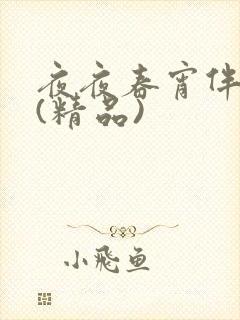 夜夜春宵伴
(精品)
小飛魚